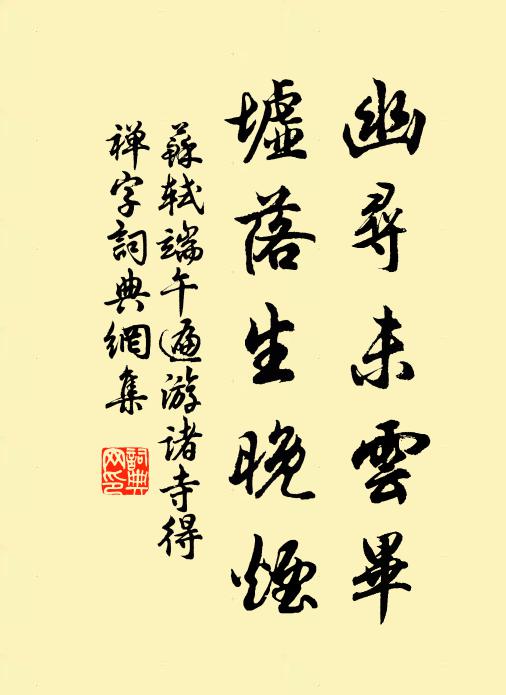 幽尋未雲畢
墟落生晚煙
蘇軾端午遍游諸寺得
禅字詞典網集
詞典
网印